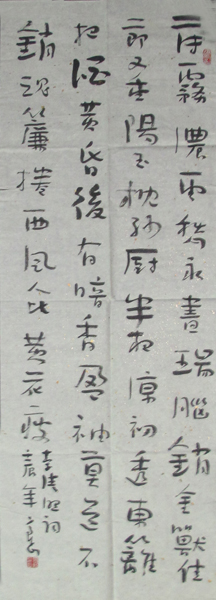 薄霧濃雲愁永晝瑞腦銷金獸佳
節又重陽玉枕紗厨半夜凉初透東籬
把酒黃昏後有暗香盈袖莫道不
銷魂簾捲西風人比黃花瘦
李清照詞
辰年